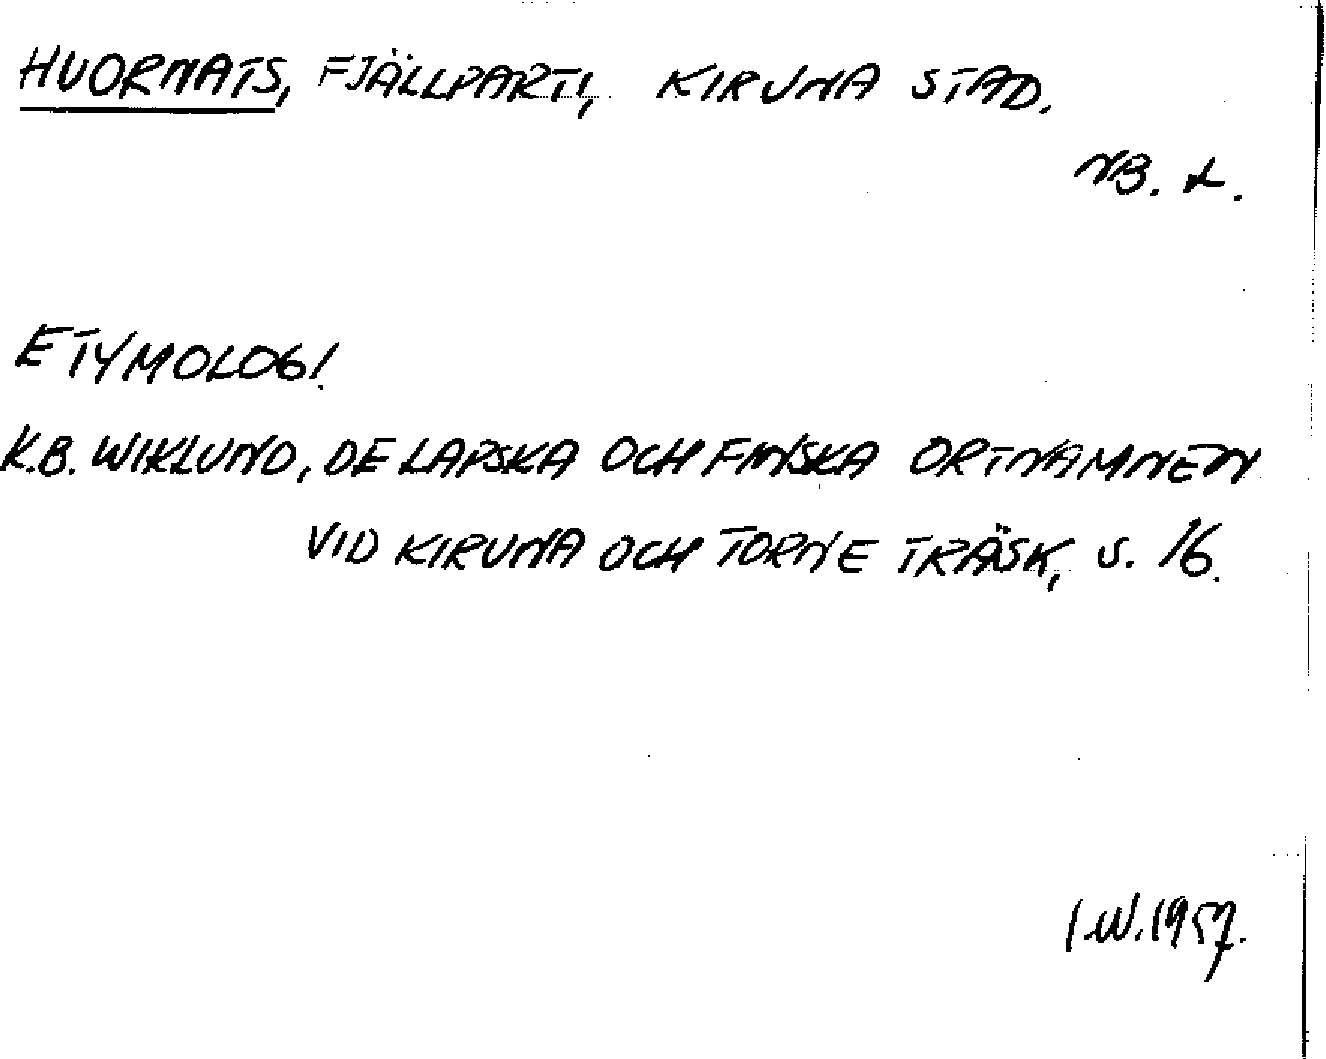 HUORNATS, FJÄLLPARTI, KIRUNA STAD.
NB. L.
ETYMOLOGI.
K.B. WIKLUND, DE LAPSKA OCH FINSKA ORTNAMNEN
VID KIRUNA OCH TORNE TRÄSK, S. 16.
I.W. 1957.